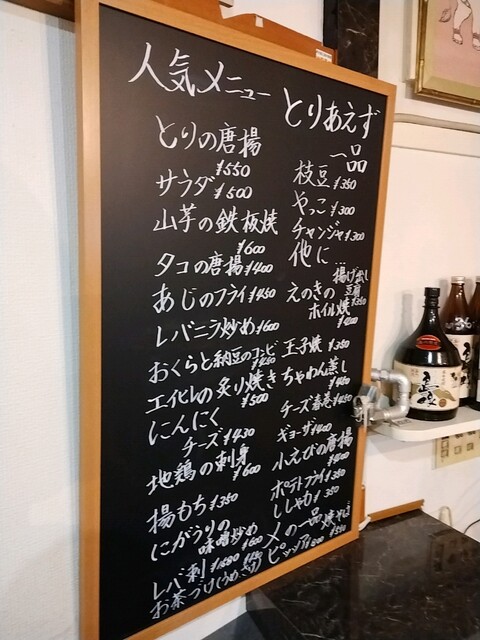 人気メニュー
とりの唐揚
¥550
サラダ
¥500
山芋の鉄板焼
¥600
タコの唐揚 ¥400
あじのフライ ¥450
レバニラ炒め ¥600
おくらと納豆のコンビ
エイヒレの炙り焼き
¥500
にんにく
チーズ ¥430
地鶏の刺身
¥600
揚もち ¥350
にがうりの
味噌炒め
¥600
レバ刺
お茶づけ(うめ・
とりあえず
一品
枝豆 ¥350
やっこ ¥300
チャンジャ ¥300
他に…
揚げ出し
豆腐
¥350
えのきの
ホイル焼
¥400
玉子焼 ¥350
ちゃわん蒸し
チーズ春巻 ¥450
ギョーザ ¥400
小えびの唐揚
¥400
ポテトフライ ¥350
ししゃも ¥350
〆の一品
焼そば
ピッツァ